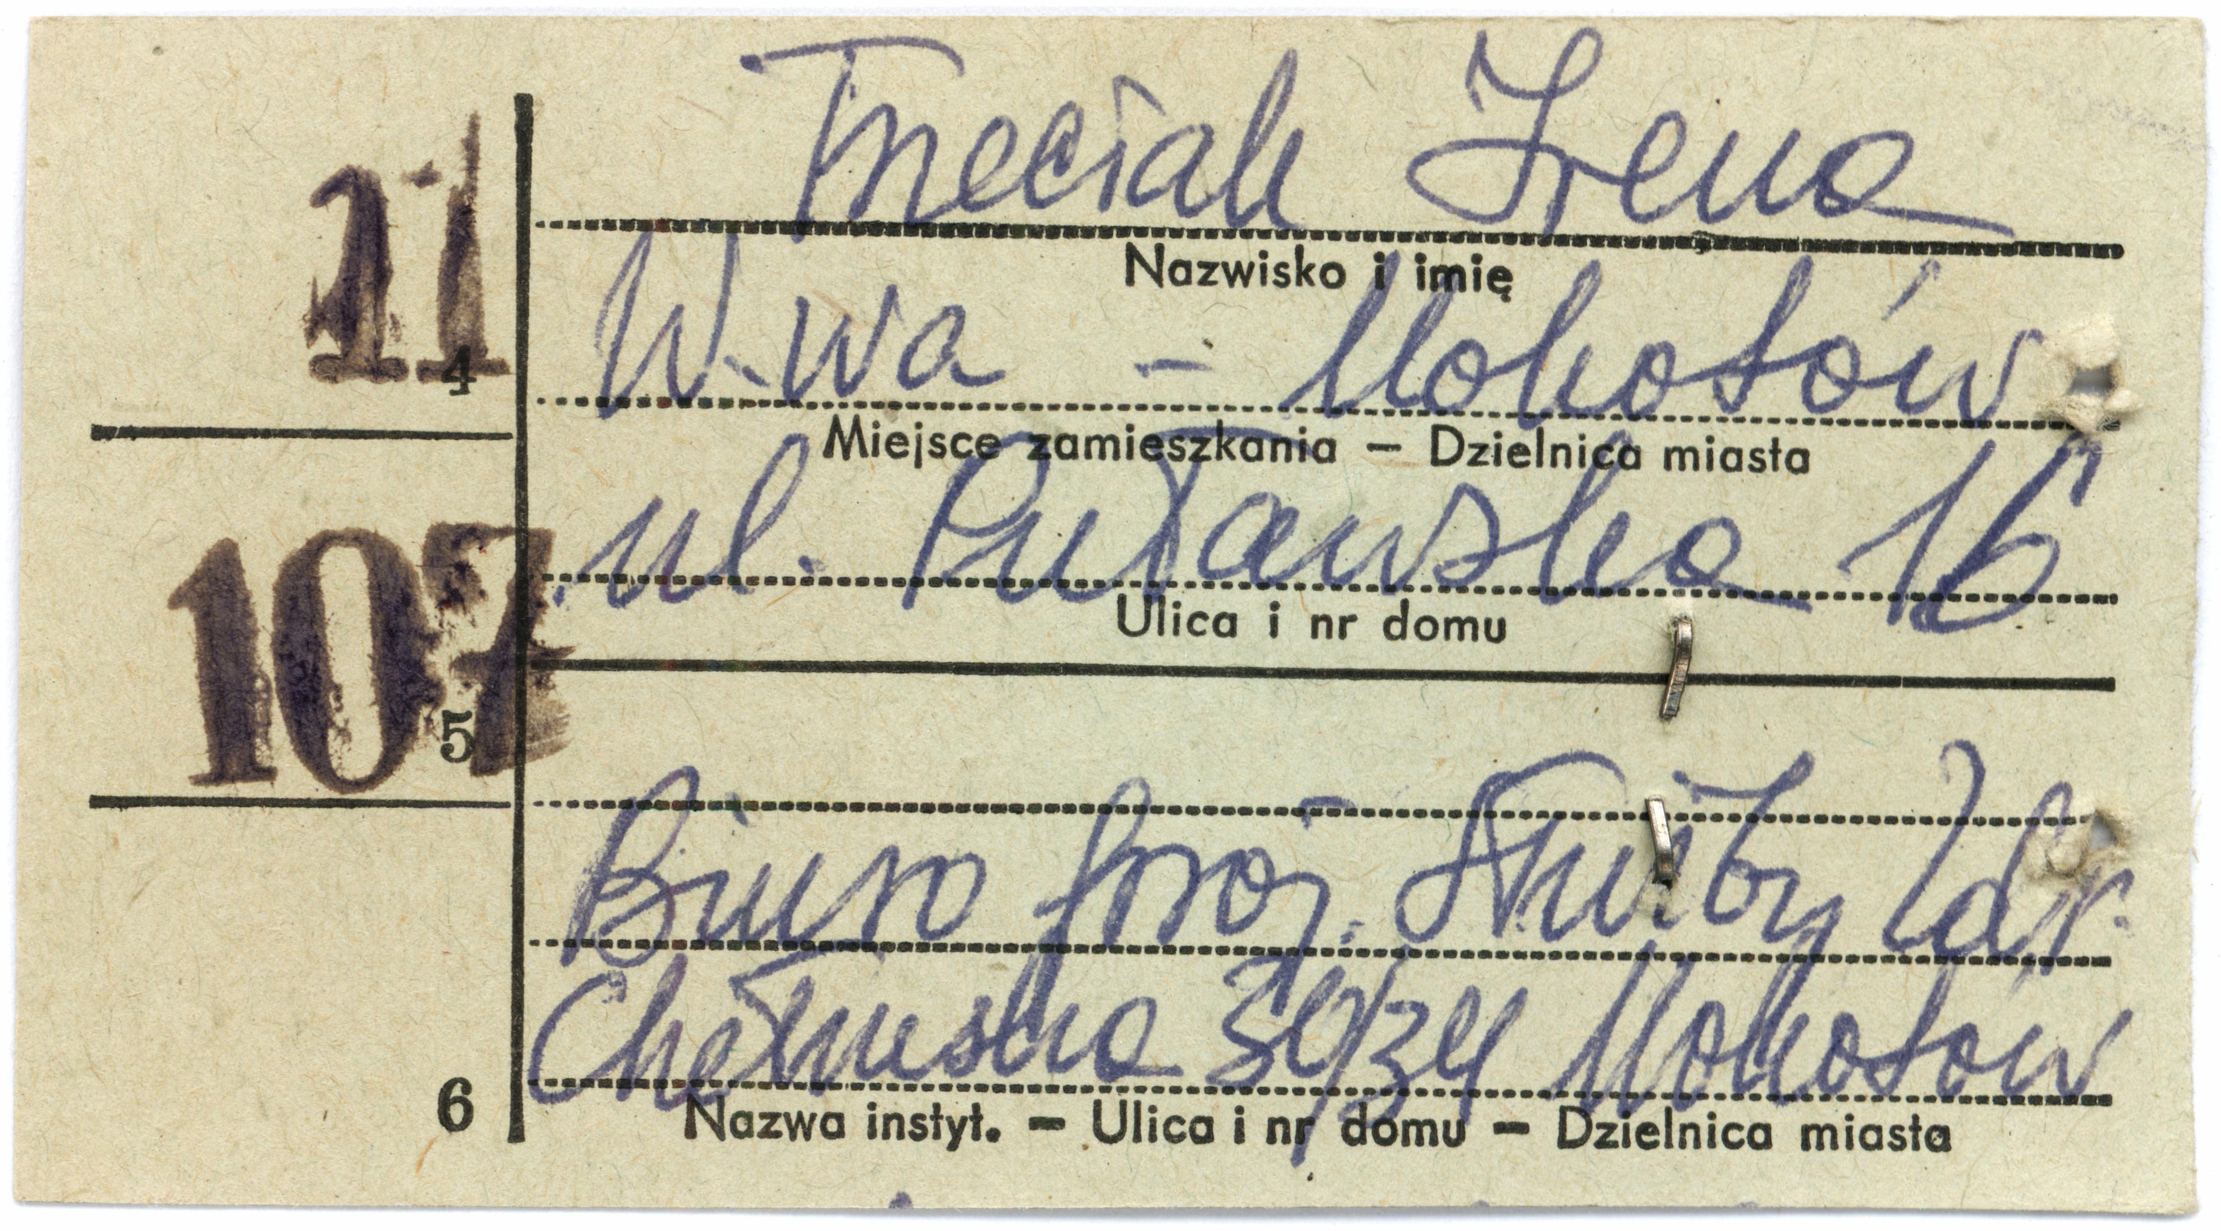 Trzeciak Irena
Nazwisko i imię
W-wa - Mokotów
Miejsce zamieszkania – Dzielnica miasta
ul. Puławska 16
Ulica i nr domu
Biuro proj. Służby Zdr.
Chełmska 30/34 Mokotów
Nazwa instyt. – Ulica i nr domu – Dzielnica miasta
11
4
107
5
6